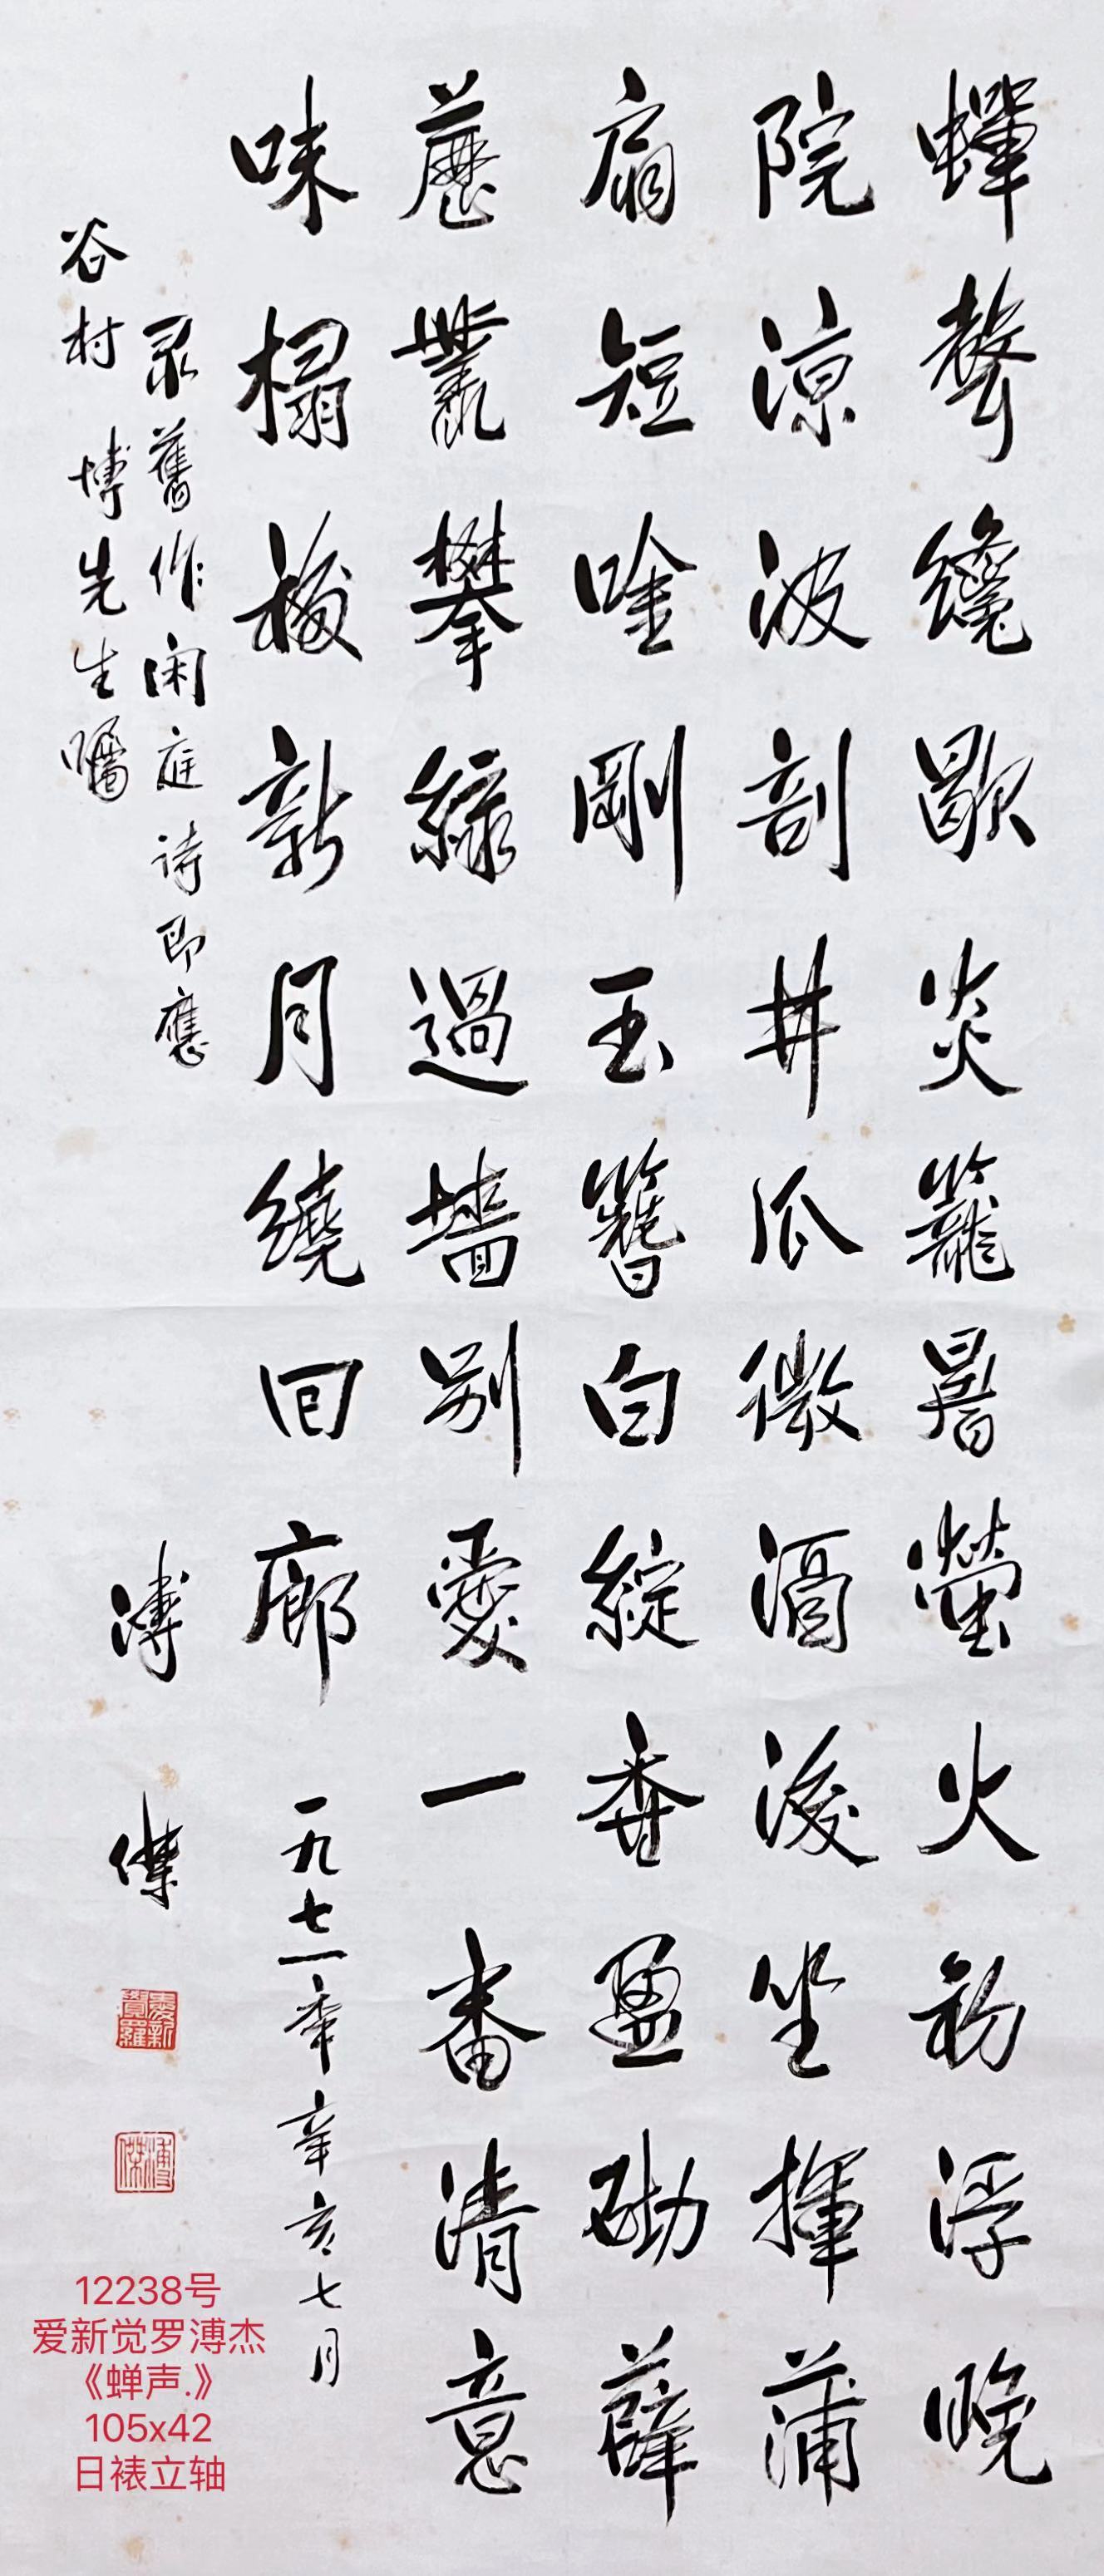 蟬聲纔歇炎籠暑螢火初浮晚
院涼波剖井瓜微酒後坐揮蒲
扇短唫剛玉簪白綻香盈砌薜
叢攀綠過墻別愛一番清意
味榻移新月繞回廊 一九七一年辛亥七月
录舊作闲庭诗即應
谷村 博先生囑
溥傑
愛新覺羅
溥傑
12238号
爱新觉罗溥杰
《蝉声.》
105x42
日裱立轴